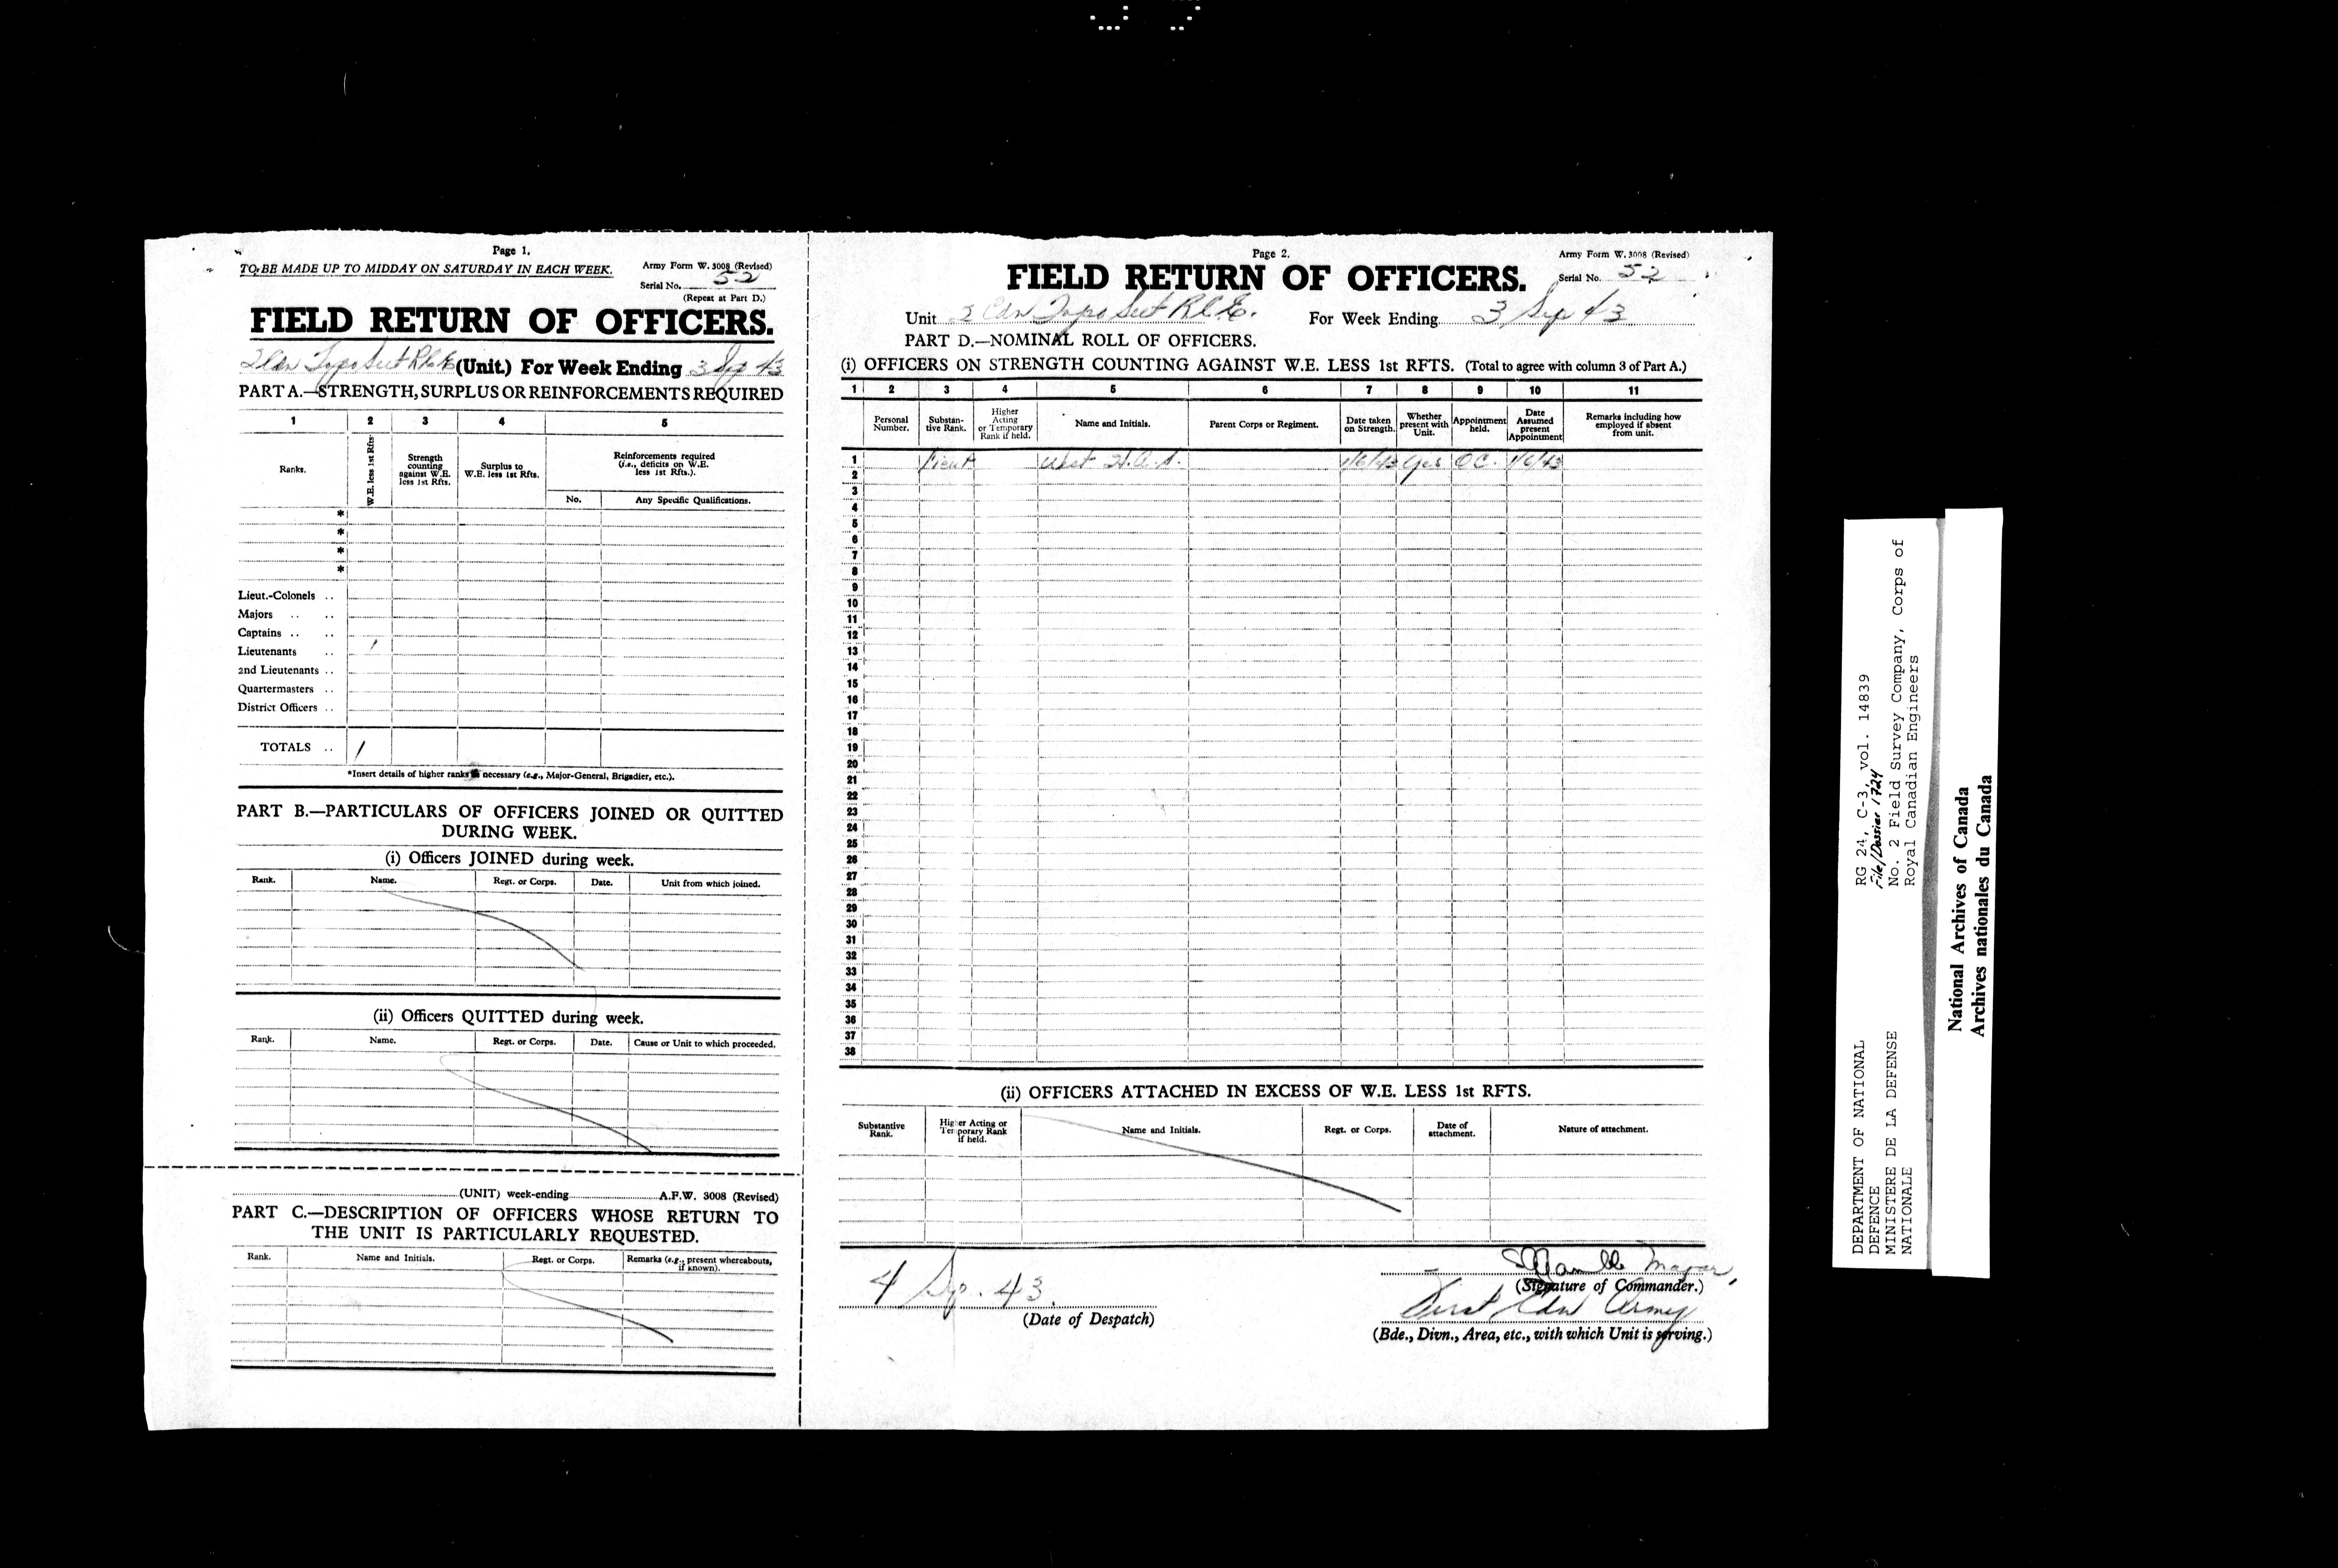 Page 1.
TO BE MADE UP TO MIDDAY ON SATURDAY IN EACH WEEK.
Army Form W. 3008 (Revised)
Serial No. 52
(Repeat at Part D.)
FIELD RETURN OF OFFICERS.
2 Cdn Topo Sect RCE (Unit.) For Week Ending 3 Sep 43
PART A.—STRENGTH, SURPLUS OR REINFORCEMENTS REQUIRED
1 2 3 4 5
Ranks.
W.E. less 1st Rfts.
Strength counting against W.E. less 1st Rfts.
Surplus to W.E. less 1st Rfts.
Reinforcements required (i.e., deficits on W.E. less 1st Rfts.).
No.
Any Specific Qualifications.
*
*
*
*
Lieut.-Colonels ..
Majors .. ..
Captains .. ..
Lieutenants .. 1
2nd Lieutenants ..
Quartermasters ..
District Officers ..
TOTALS .. 1
*Insert details of higher ranks necessary (e.g., Major-General, Brigadier, etc.).
PART B.—PARTICULARS OF OFFICERS JOINED OR QUITTED
DURING WEEK.
(i) Officers JOINED during week.
Rank. Name. Regt. or Corps. Date. Unit from which joined.
(ii) Officers QUITTED during week.
Rank. Name. Regt. or Corps. Date. Cause or Unit to which proceeded.
(UNIT) week-ending A.F.W. 3008 (Revised)
PART C.—DESCRIPTION OF OFFICERS WHOSE RETURN TO
THE UNIT IS PARTICULARLY REQUESTED.
Rank. Name and Initials. Regt. or Corps. Remarks (e.g., present whereabouts, if known).
Page 2.
Army Form W. 3008 (Revised)
FIELD RETURN OF OFFICERS.
Serial No. 52
Unit 2 Cdn Topo Sect RCE. For Week Ending 3 Sep 43
PART D.—NOMINAL ROLL OF OFFICERS.
(i) OFFICERS ON STRENGTH COUNTING AGAINST W.E. LESS 1st RFTS. (Total to agree with column 3 of Part A.)
1 2 3 4 5 6 7 8 9 10 11
Personal Number.
Substantive Rank.
Higher Acting or Temporary Rank if held.
Name and Initials.
Parent Corps or Regiment.
Date taken on Strength.
Whether present with Unit.
Appointment held.
Date Assumed present Appointment
Remarks including how employed if absent from unit.
1 Lieut West 1/6/43 Yes OC. 1/6/43
2
3
4
5
6
7
8
9
10
11
12
13
14
15
16
17
18
19
20
21
22
23
24
25
26
27
28
29
30
31
32
33
34
35
36
37
38
(ii) OFFICERS ATTACHED IN EXCESS OF W.E. LESS 1st RFTS.
Substantive Rank.
Higher Acting or Temporary Rank if held.
Name and Initials.
Regt. or Corps.
Date of attachment.
Nature of attachment.
4 Sep. 43.
(Date of Despatch)
Major,
(Signature of Commander.)
First Cdn Army
(Bde., Divn., Area, etc., with which Unit is serving.)
DEPARTMENT OF NATIONAL
DEFENCE
MINISTERE DE LA DEFENSE
NATIONALE
RG 24, C-3, vol. 14839
File/Dossier 1724
No. 2 Field Survey Company, Corps of
Royal Canadian Engineers
National Archives of Canada
Archives nationales du Canada